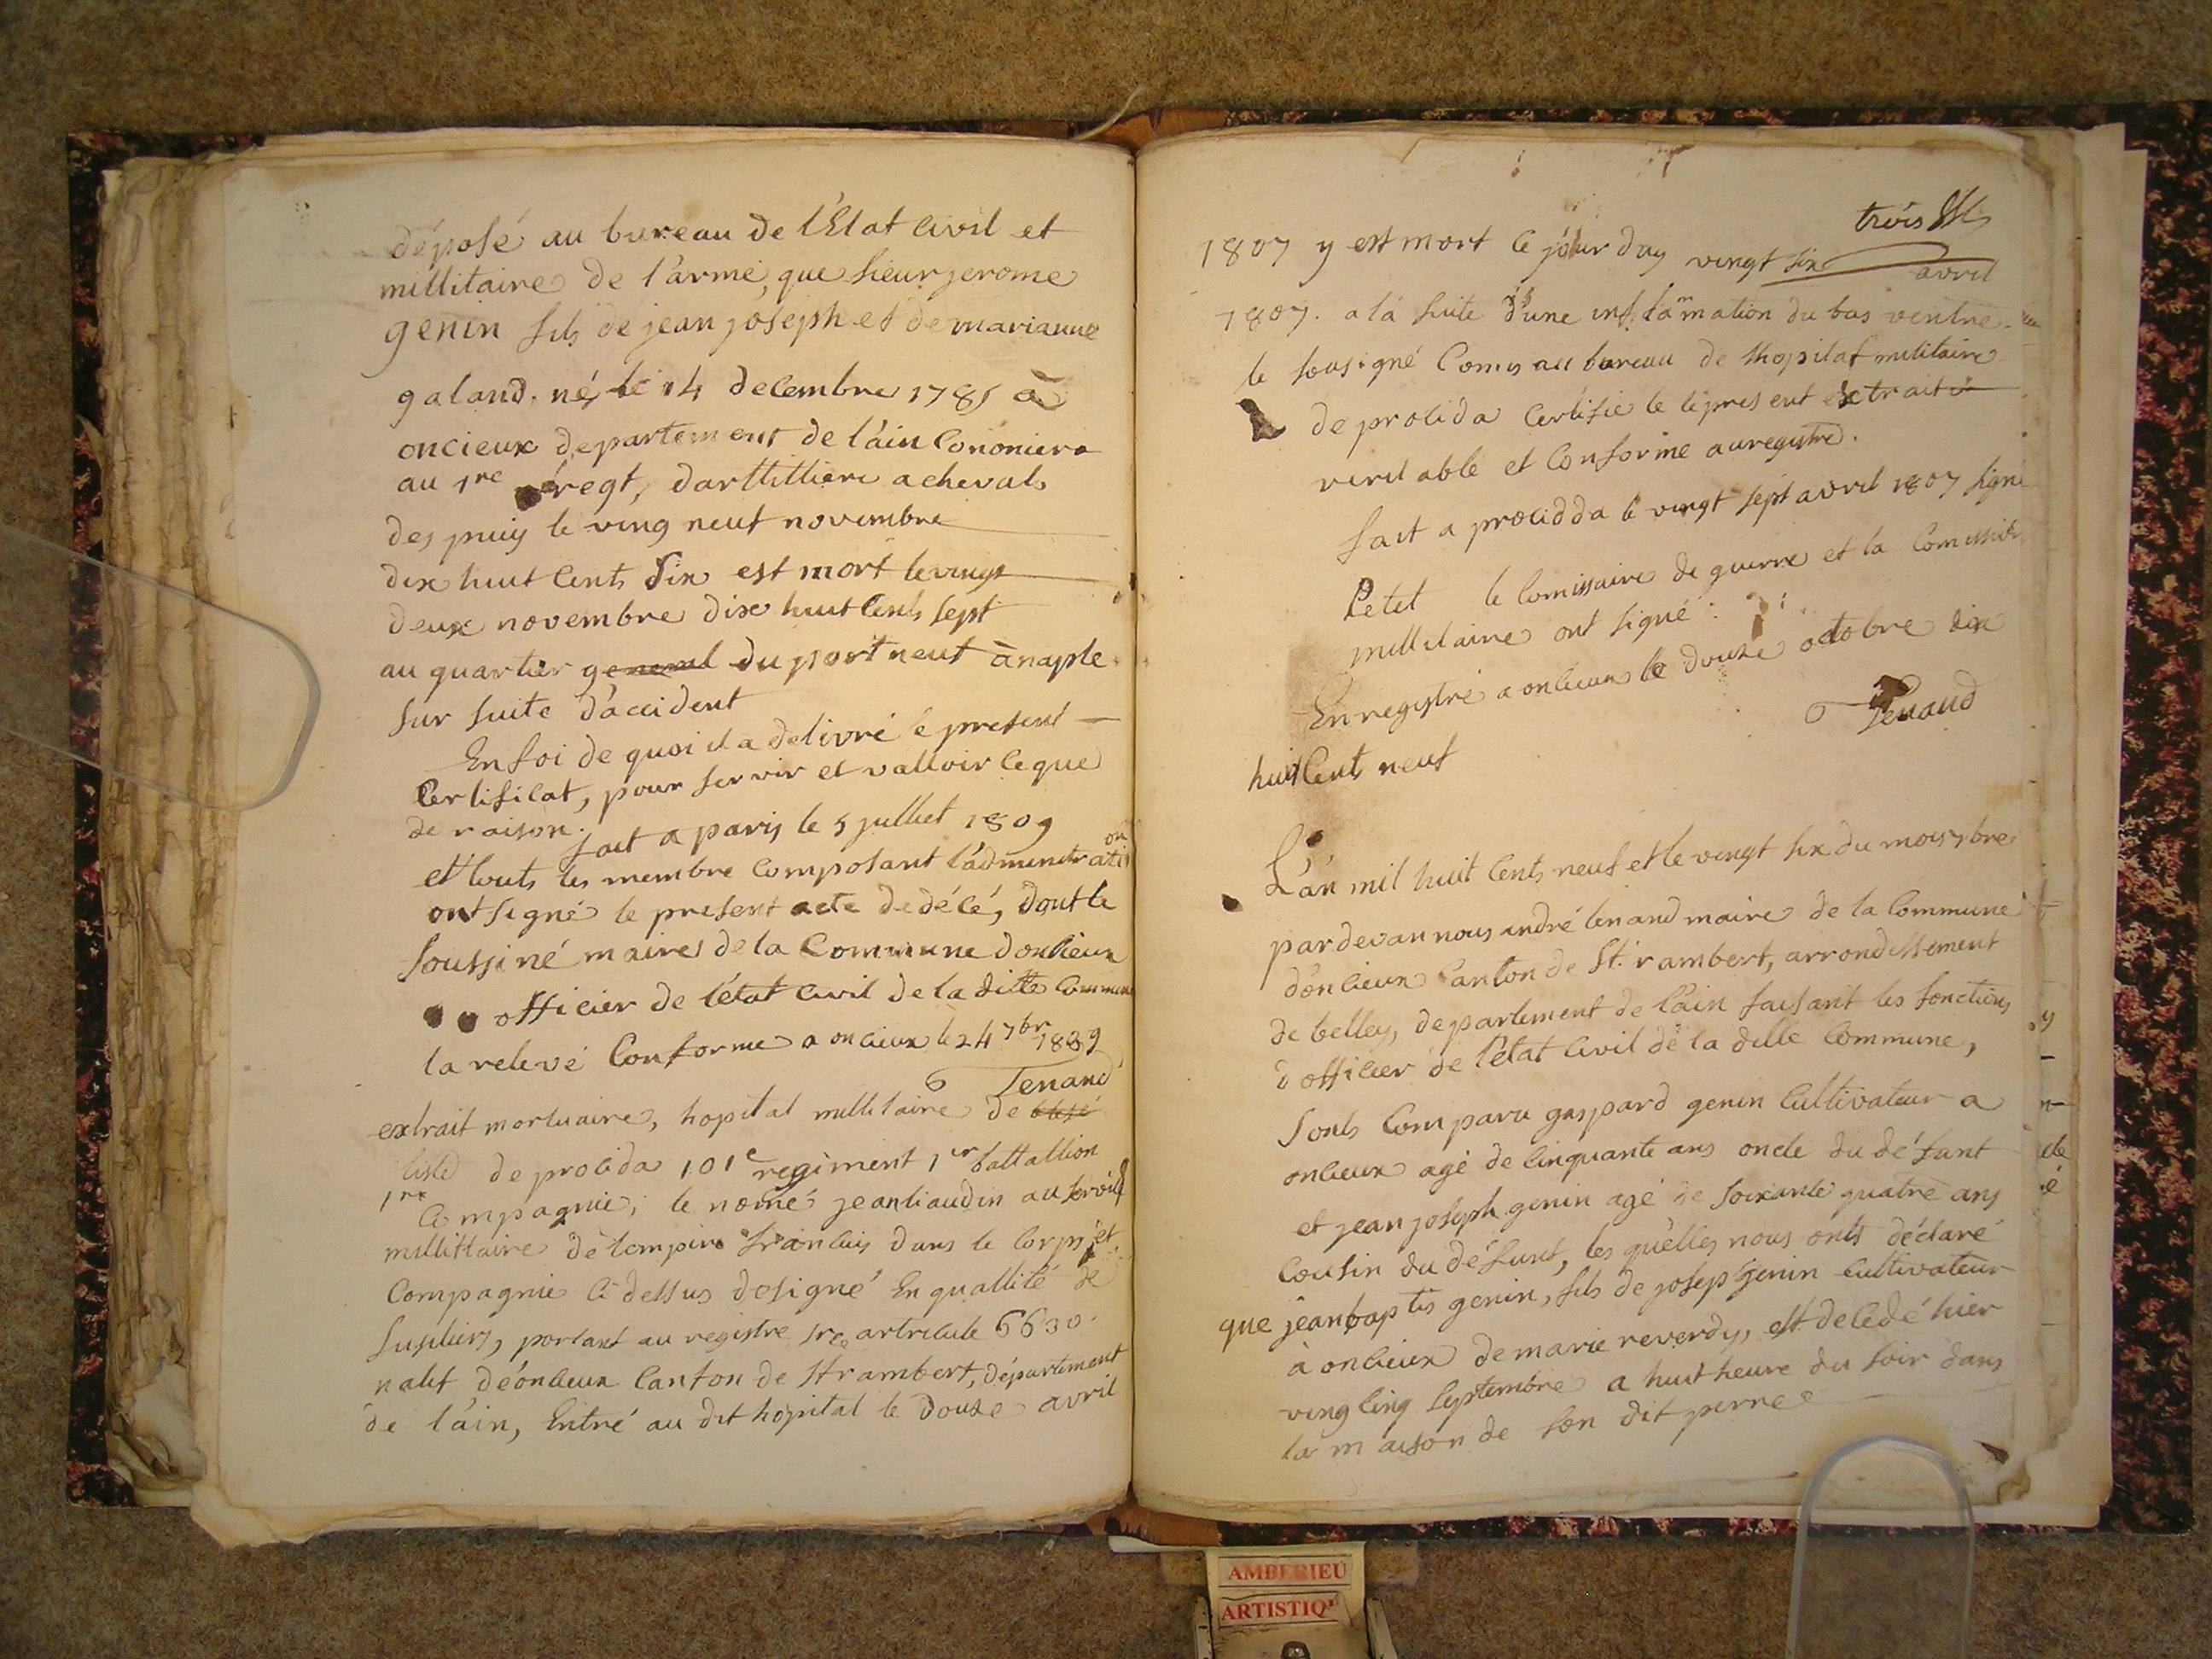 déposé au bureau de l'Etat Civil et
millitaire de l'armé, que sieur jerome
genin fils de jean joseph et de marianne
galand, né le 14 decembre 1785 a
oncieux departement de l'ain Cononiere
au 1re regt, darttilliere a cheval
des puiy le ving neuf novembre
dix huit Cents Six est mort le vingt
deux novembre dix huit Cents sept
au quartier general du port neuf à naple
sur suite d'accident
En foi de quoi il a delivré le present
Certificat, pour servir et valloir ce que
de raison.
fait a paris le 5 julliet 1809
et touts les membre Composant l'adminitration
ont signé le present acte de décé, dont le
soussiné maire de la Commune doncieux
officier de l'état Civil de la ditte Commune
la relevé Conforme a oncieux le 24 7bre 1809
Tenand
extrait mortuaire, hopital millitaire de
de procida 101e regiment 1er battallion
1re Compagnie, le nomé jean liaudin au service
millittaire de l'empire francais dans le Corps et
Compagnie Ci dessus designé En quallité de
fusiliers, portant au registre matricule 6630
natif d'éoncieux Canton de St rambert, département
de l'ain, Entré au dit hopital le Douze avril
trois
1807 y est mort le jour duy vingt six avril
1807. a la suite d'une inflammation du bas ventre.
le sousigné Comis au bureau de l'hopital militaire
de procida Certifie le present extrait
veritable et Conforme au registre.
fait a procidda le vingt sept avril 1807 signé
Petet le Comissaire de guerre et la Comission
millitaire ont signé :
Enregistré a oncieux le douze octobre dix
Tenand
huit Cent neuf
L'an mil huit Cents neuf et le vingt six du mois 7bre
pardevan nous andré tenand maire de la Commune
d'oncieux Canton de St. rambert, arrondissement
de belley, departement de l'ain faisant les fonctions
d'officier de l'état Civil de la ditte Commune,
Sonts Comparu gaspard genin Cultivateur a
oncieux agé de Cinquante ans oncle du défunt
et jean joseph genin agé de soixante quatre ans
Cousin du défunt, les quelles nous onts déclaré
que jean baptis genin, fils de joseph genin Cultivateur
à oncieux de marie reverdy, est decedé hier
ving cinq septembre a huit heure du soir dans
la maison de son dit perre
AMBERIEU
ARTISTIQ